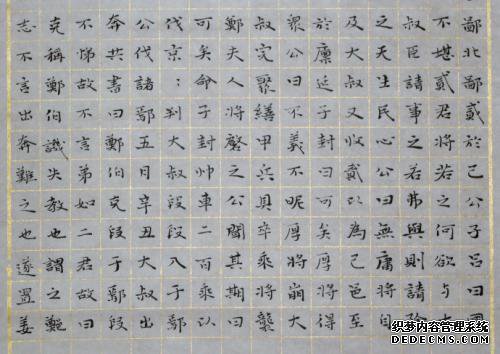 鄙北鄙貳於己公子呂曰國
不堪貳君將若之何欲与大
叔臣請事之若弗與則請除
之无生民心公曰無庸將自
及大叔又收貳以為己邑至
於廩延子封曰可矣厚將得
眾公曰不義不昵厚將崩大
叔完聚繕甲兵具卒乘將襲
鄭夫人將啓之公聞其期曰
可矣命子封帥車二百乘以
伐京：判大叔段段入于鄢
公伐諸鄢五月辛丑大叔出
奔共書曰鄭伯克段于鄢段
不悌故不言弟如二君故曰
克稱鄭伯譏失教也謂之鄭
志不言出奔難之也遂置姜
织梦内容管理系统
DEDECMS.COM